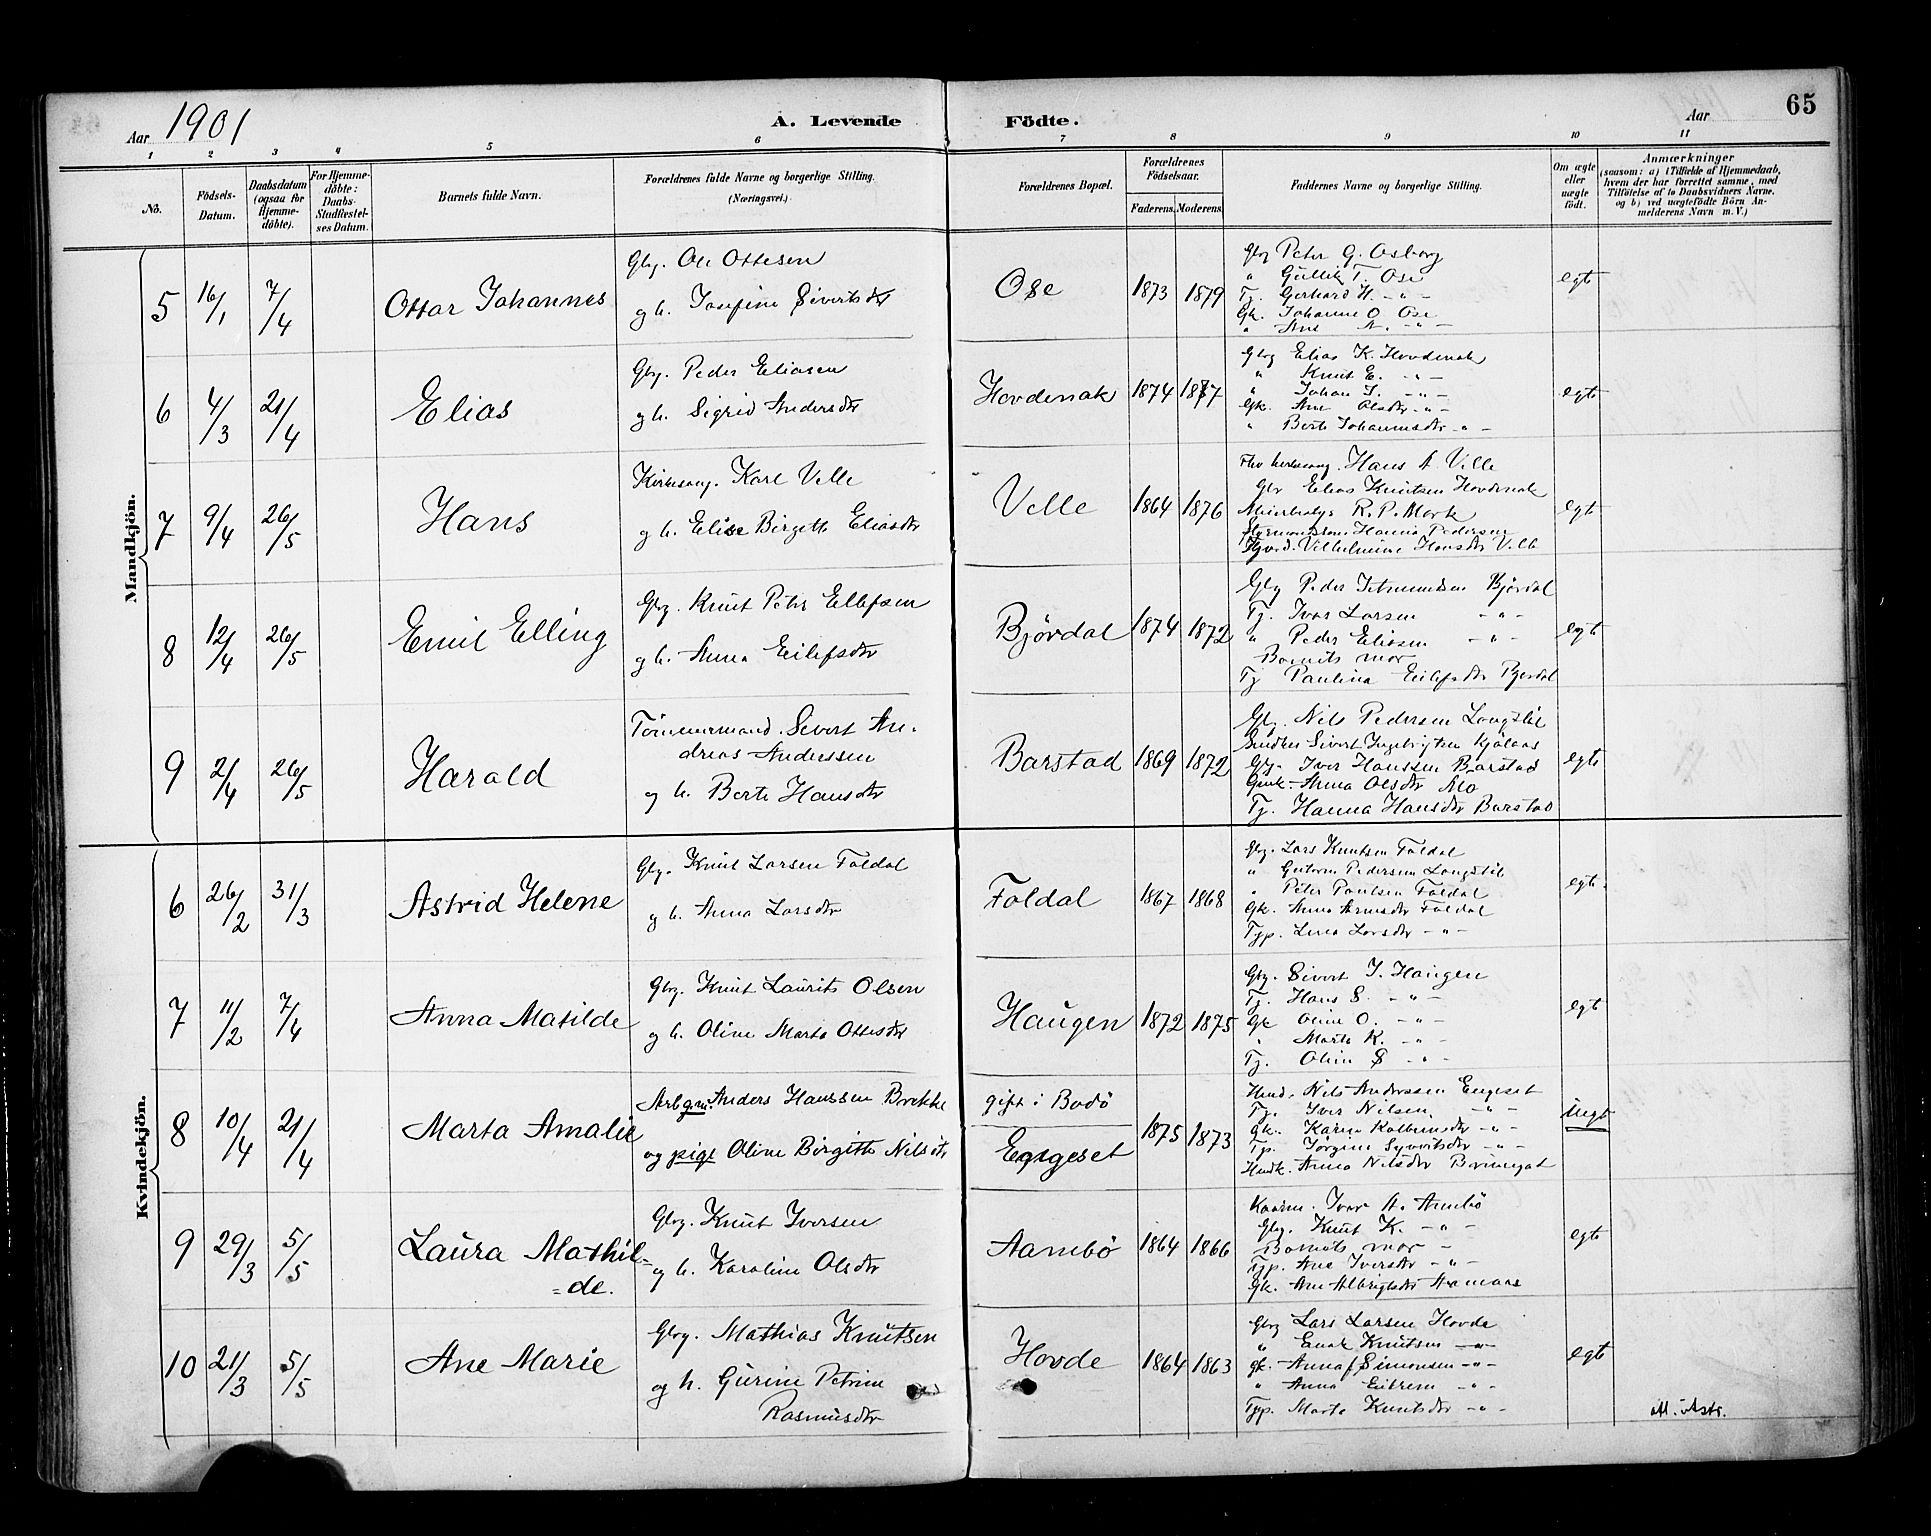 Aar 1901
A. Levende Fødte.
Aar
65
1 2 3 4 5 6 7 8 9 10 11
No.
Fødsels-Datum.
Daabsdatum (ogsaa for Hjemme-døbte).
For Hjemme-døbte: Daabs-Stadfæstel-ses Datum.
Barnets fulde Navn.
Forældrenes fulde Navne og borgerlige Stilling. (Næringsvei.)
Forældrenes Bopæl.
Forældrenes Fødselsaar.
Faderens. Moderens.
Faddernes Navne og borgerlige Stilling.
Om ægte eller uægte født.
Anmærkninger
(saasom: a) i Tilfælde af Hjemmedaab,
hvem der har forrettet samme, med
Tilføielse af to Daabsvidners Navne,
og b) ved uægtefødte Børn An-
melderens Navn m. V.)
Mandkjön.
5 16/1 7/4 Ottar Johannes
Gbr. Ole Ottesen
og h. Josefine Sivertsdtr
Ose 1873 1879
Gbr Peter G. Osborg
" Gullik T. Ose
Tj. Gerhard H. -"-
Gk. Johanne O Ose
" Ane A. -"-
egte
6 4/3 21/4 Elias
Gbr. Peder Eliasen
og h. Sigrid Andersdtr
Hovdenak 1874 1877
Gbr Elias K. Hovdenak
" Knut E. -"-
" Johan J. -"-
Gk. Ane Olsdtr -"-
" Berte Johannesdtr -"-
egte
7 9/4 26/5 Hans
Kirkesang. Karl Velle
og h. Elise Birgitte Eliasdtr
Velle 1864 1876
Fhv kirkesang. Hans A. Velle
Gbr Elias Knutsen Hovdenak
R. P. Mork
Hanna Pedersen
Vilhelmine Hansdtr Velle
egte
8 12/4 26/5 Emil Elling
Gbr. Knut Peter Ellefsen
og h. Anna Eilefsdtr
Bjørdal 1874 1872
Gbr Peder Bjørdal
Tj. Ivar Larsen -"-
" Peder Eliasen -"-
Barnets mor
Tj Paulina Eilefsdtr Bjørdal
egte
9 2/4 26/5 Harald
Tømmermand. Sivert An-
dreas Anderssen
og h. Berte Hansdtr
Barstad 1869 1872
Gbr. Nils Pedersen Langstil
Sivert Ingebrigtsen
Gbr. Iver Hanssen Barstad
Anna Olsdtr Mo
Tj. Hanna Hansdtr Barstad
egte
Kvindekjön.
6 26/2 31/3 Astrid Helene
Gbr. Knut Larsen Foldal
og h. Anna Larsdtr
Foldal 1867 1868
Gbr. Lars Knutsen Foldal
" Guttorm Pedersen Langstil
" Peter Paulsen Foldal
Gk. Anna Arnesdtr Foldal
Tjp. Lina Larsdtr -"-
egte
7 11/2 7/4 Anna Matilde
Gbr. Knut Laurits Olsen
og h. Oline Marta Ottesdtr
Haugen 1872 1875
Gbr. Sivert J. Haugen
Tj. Hans S. -"-
Gk Oline O. -"-
" Marte K. -"-
Tj. Oline S -"-
egte
8 10/4 21/4 Marta Amalie
Arb gm. Anders Hanssen Brekke
og pige Oline Birgitte Nilsdtr
gift i Bodø
Engeset
1875 1873
Husm. Nils Anderssen Engeset
Tj. Iver Nilsen -"-
Gk. Karen -"-
Tp. Jørgine Syvertsdtr -"-
Husk. Anna Nilsdtr
uegt
9 29/3 5/5 Laura Mathil-
=de.
Gbr. Knut Iversen
og h. Karoline Olsdtr
Aambø 1864 1866
Kaarm. Ivar A. Aambø
Gbr. Knut K. -"-
Barnets mor -
Tjp. Ane Iversdtr -"-
Gk. Ane Albrigtsdtr
egte
10 21/3 5/5 Ane Marie
Gbr. Mathias Knutsen
og h. Gurine Petrine
Rasmusdtr
Hovde 1864 1863
Gbr Lars Larsen Hovde
" Enok Knutsen -"-
gk. Anna Simonsen -"-
" Anna -"-
Tjp. Marte Knutsdtr -"-
egte
att. utstr.